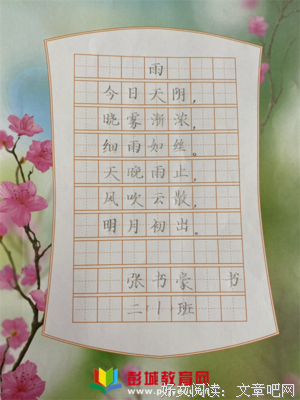 雨
今日天阴，
晓雾渐浓，
细雨如丝。
天晚雨止，
风吹云散，
明月初出。
张书豪 书
二（1）班
彭城教育网
好文阅读：文章吧网